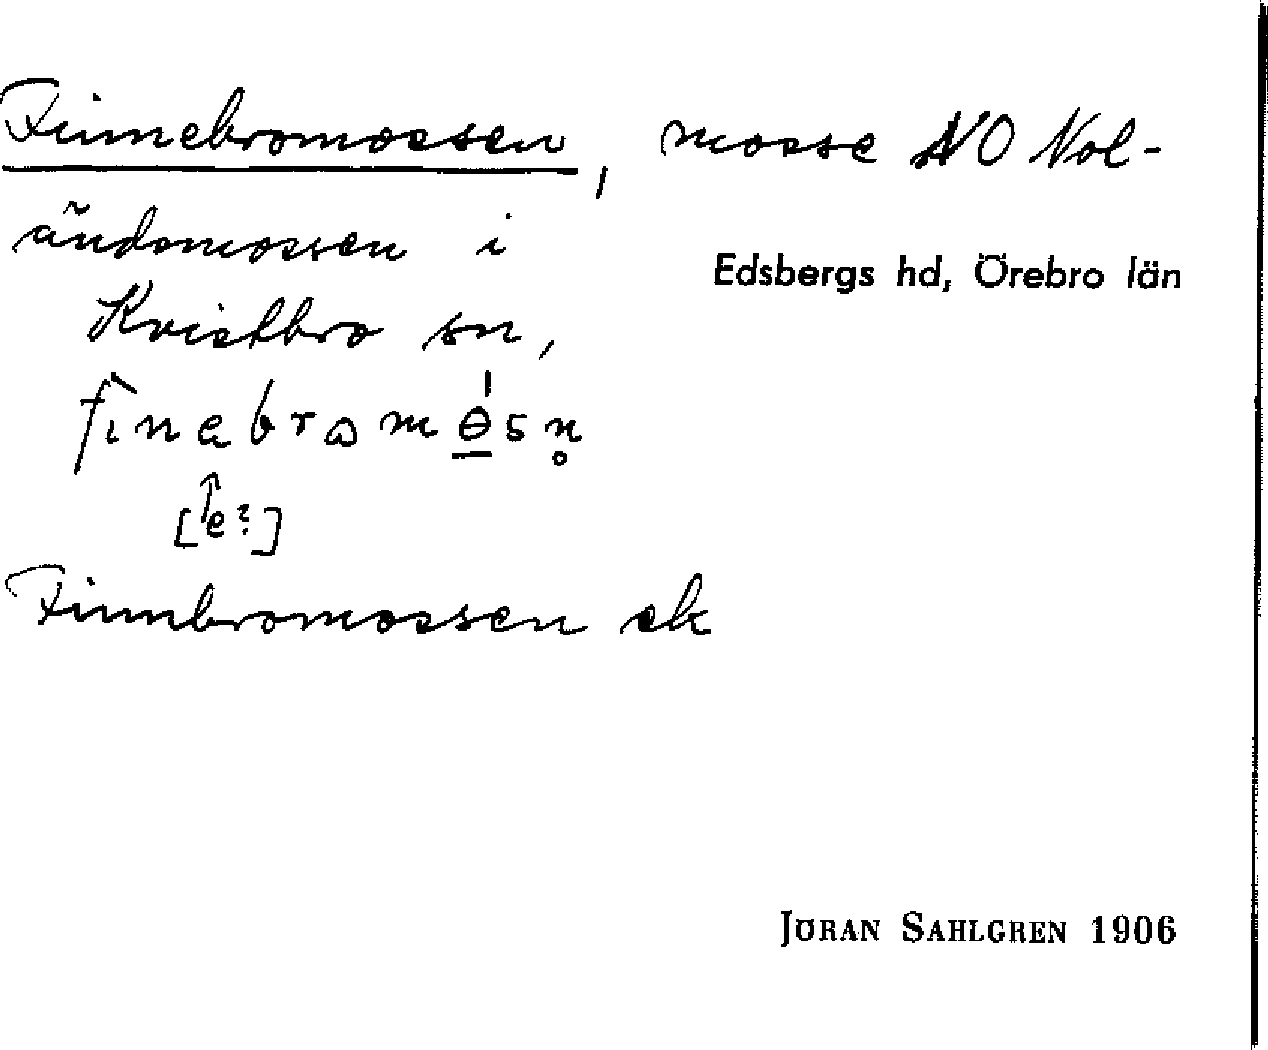 Finnebromossen, mosse NO Nol-
ändomossen i
Edsbergs hd, Örebro län
Kvistbro sn,
[e?]
Finnbromossen ek
JÖRAN SAHLGREN 1906